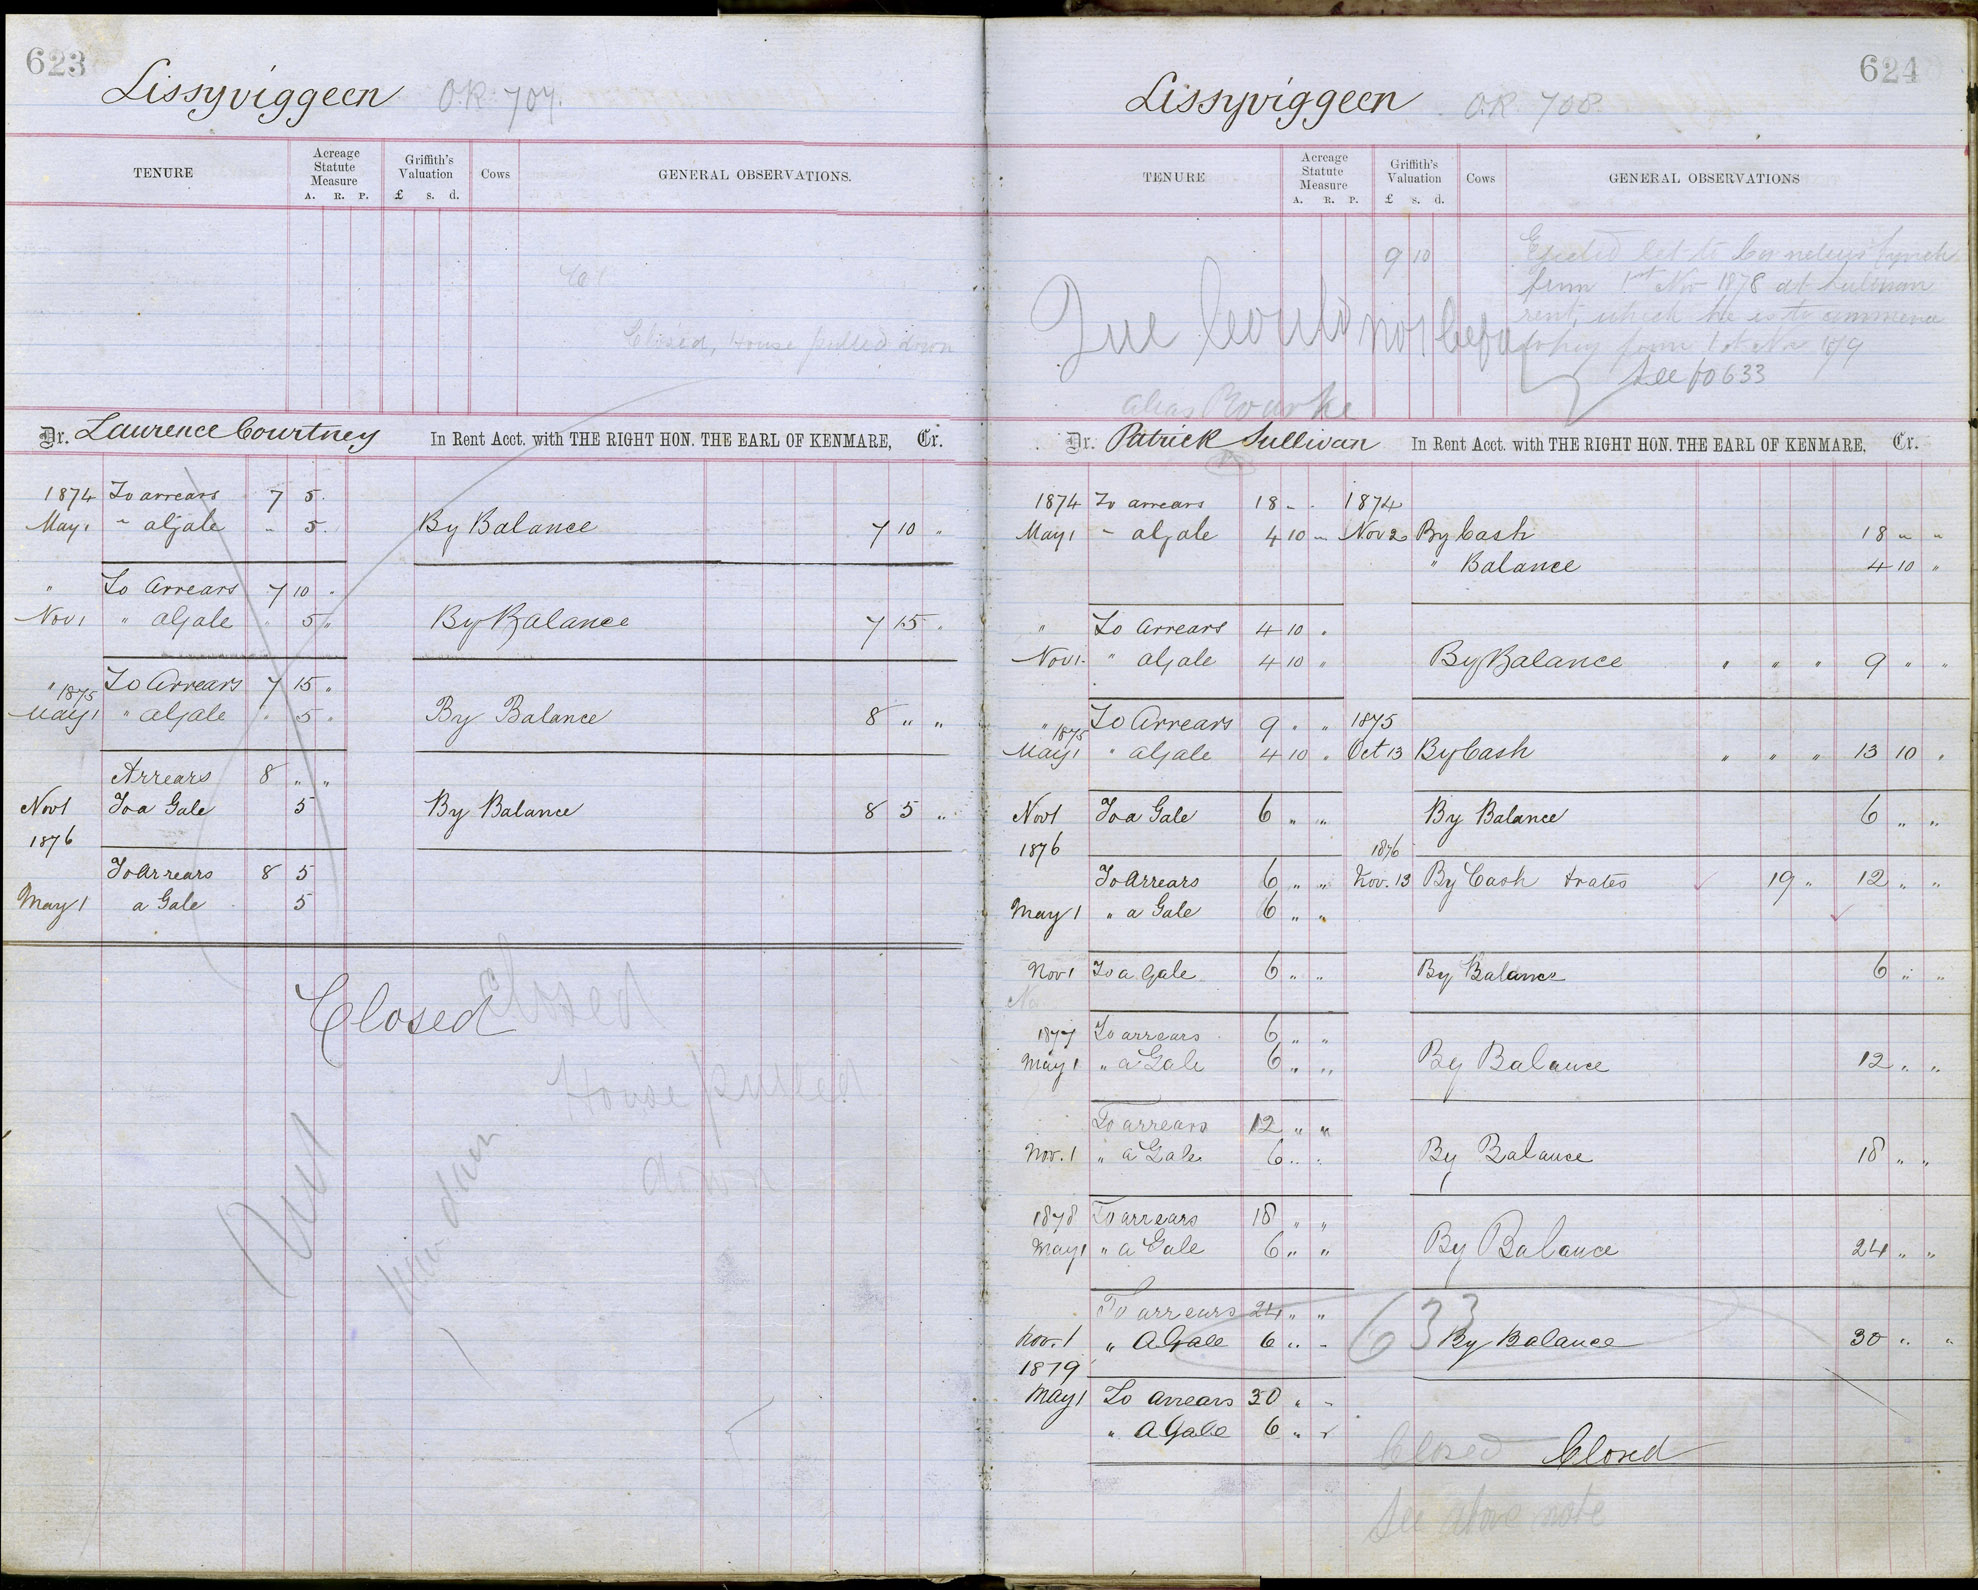 623
Lissyviggeen O.R. 707.
TENURE Acreage Statute Measure A. R. P. Griffith's Valuation £ s. d. Cows GENERAL OBSERVATIONS.
Closed, House pulled down
Dr. Laurence Courtney In Rent Acct. with THE RIGHT HON. THE EARL OF KENMARE, Cr.
1874 To arrears 7 5
May 1 " a Gale " 5 By Balance 7 10 "
" To Arrears 7 10 "
Nov 1 " a Gale " 5 " By Balance 7 15 "
" 1875 To Arrears 7 15 "
May 1 " a Gale " 5 " By Balance 8 " "
Arrears 8 " "
Nov 1 To a Gale 5 By Balance 8 5 "
1876
To Arrears 8 5
May 1 a Gale 5
Closed Closed
House pulled
down
624
Lissyviggeen O.R. 708.
TENURE Acreage Statute Measure A. R. P. Griffith's Valuation £ s. d. Cows GENERAL OBSERVATIONS
9 10
Ejected let to Cornelius Lynch
from 1st Nov 1878 at Sullivan
rent, which he is to commence
to pay from 1st Nov 1879
See fo 633
alias Rourke
Dr. Patrick Sullivan In Rent Acct. with THE RIGHT HON. THE EARL OF KENMARE, Cr.
1874 To arrears 18 - . 1874
May 1 " a Gale 4 10 " Nov 2 By Cash 18 " "
" Balance 4 10 "
" To Arrears 4 10 "
Nov 1. " a Gale 4 10 " By Balance " " " 9 " "
" 1875 To Arrears 9 " " 1875
May 1 " a Gale 4 10 " Oct 13 By Cash " " " 13 10 "
Nov 1 To a Gale 6 " " By Balance 6 " "
1876 1876
To Arrears 6 " " Nov. 13 By Cash & rates 19 " 12 " "
May 1 " a Gale 6 " "
Nov 1 To a Gale 6 " " By Balance 6 " "
1877 To arrears 6 " "
May 1 " a Gale 6 " " By Balance 12 " "
To arrears 12 " "
Nov. 1 " a Gale 6 " " By Balance 18 " "
1878 To arrears 18 " "
May 1 " a Gale 6 " " By Balance 24 " "
To arrears 24 " " 633
Nov. 1 " A Gale 6 " " By Balance 30 " "
1879
May 1 To arrears 30 " "
" A Gale 6 " "
Closed Closed
See above note